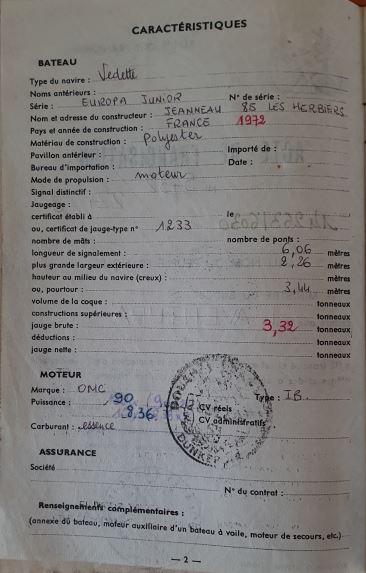 CARACTÉRISTIQUES
BATEAU
Type du navire : Vedette
Noms antérieurs :
Série : EUROPA JUNIOR N° de série :
Nom et adresse du constructeur : JEANNEAU 85 LES HERBIERS
Pays et année de construction : FRANCE 1972
Matériau de construction : Polyester
Pavillon antérieur : Importé de :
Bureau d'importation : Date :
Mode de propulsion : moteur
Signal distinctif :
Jaugeage :
certificat établi à le
ou, certificat de jauge-type n° 1233
nombre de mâts : nombre de ponts :
longueur de signalement : 6,06 mètres
plus grande largeur extérieure : 2,26 mètres
hauteur au milieu du navire (creux) : mètres
ou, pourtour : 3,44 mètres
volume de la coque : tonneaux
constructions supérieures : tonneaux
jauge brute : 3,32 tonneaux
déductions : tonneaux
jauge nette : tonneaux
MOTEUR
Marque : OMC Type : IB.
Puissance : 90 CV réels
8,36 CV administratifs
Carburant : essence
ASSURANCE
Société
N° du contrat :
Renseignements complémentaires :
(annexe du bateau, moteur auxiliaire d'un bateau à voile, moteur de secours, etc.)
— 2 —